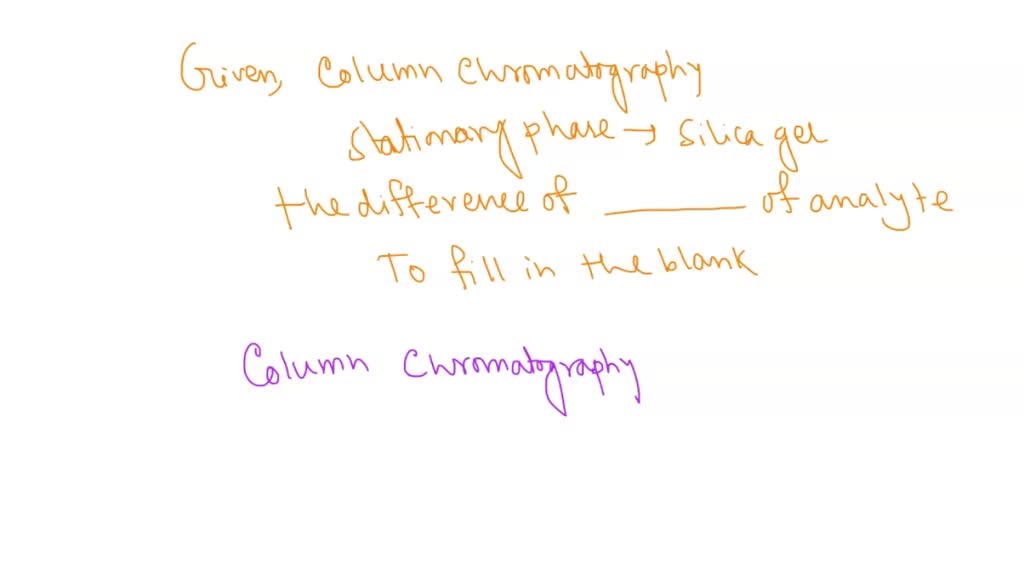 Given, Column Chromatography
Stationary phase → Silica gel
the difference of ______ of analyte
To fill in the blank
Column Chromatography